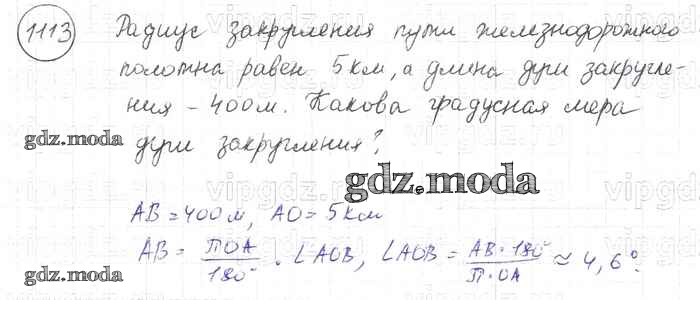 1113 Радиус закругления пути железнодорожного
полотна равен 5 км, а длина дуги закругле-
ния - 400 м. Какова градусная мера
gdz.moda
дуги закругления?
gdz.moda
AB = 400 м, AO = 5 км
AB = ПOA/180° · ∠AOB, ∠AOB = AB · 180°/П · OA ≈ 4,6°.
gdz.moda